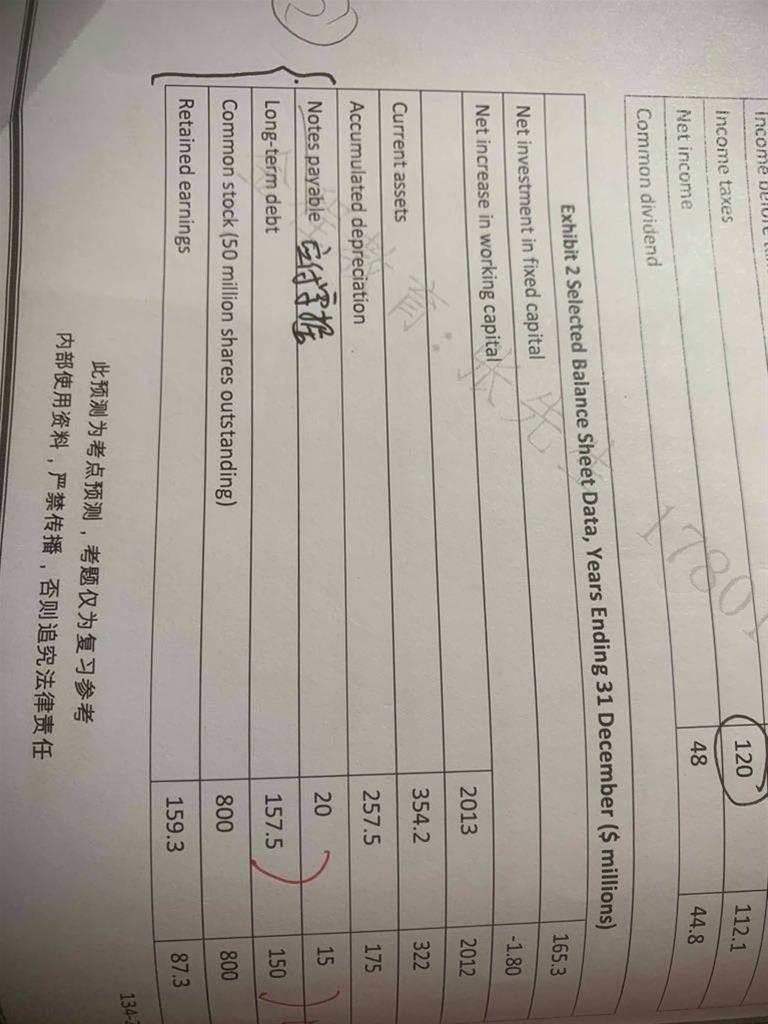 Income before
Income taxes
Net income 120 112.1
Common dividend 48 44.8
17801
Exhibit 2 Selected Balance Sheet Data, Years Ending 31 December ($ millions)
Net investment in fixed capital 165.3
Net increase in working capital -1.80
2013 2012
Current assets 354.2 322
Accumulated depreciation 257.5 175
Notes payable 应付票据 20 15
Long-term debt 157.5 150
Common stock (50 million shares outstanding) 800 800
Retained earnings 159.3 87.3
134-
此预测为考点预测，考题仅为复习参考
内部使用资料，严禁传播，否则追究法律责任